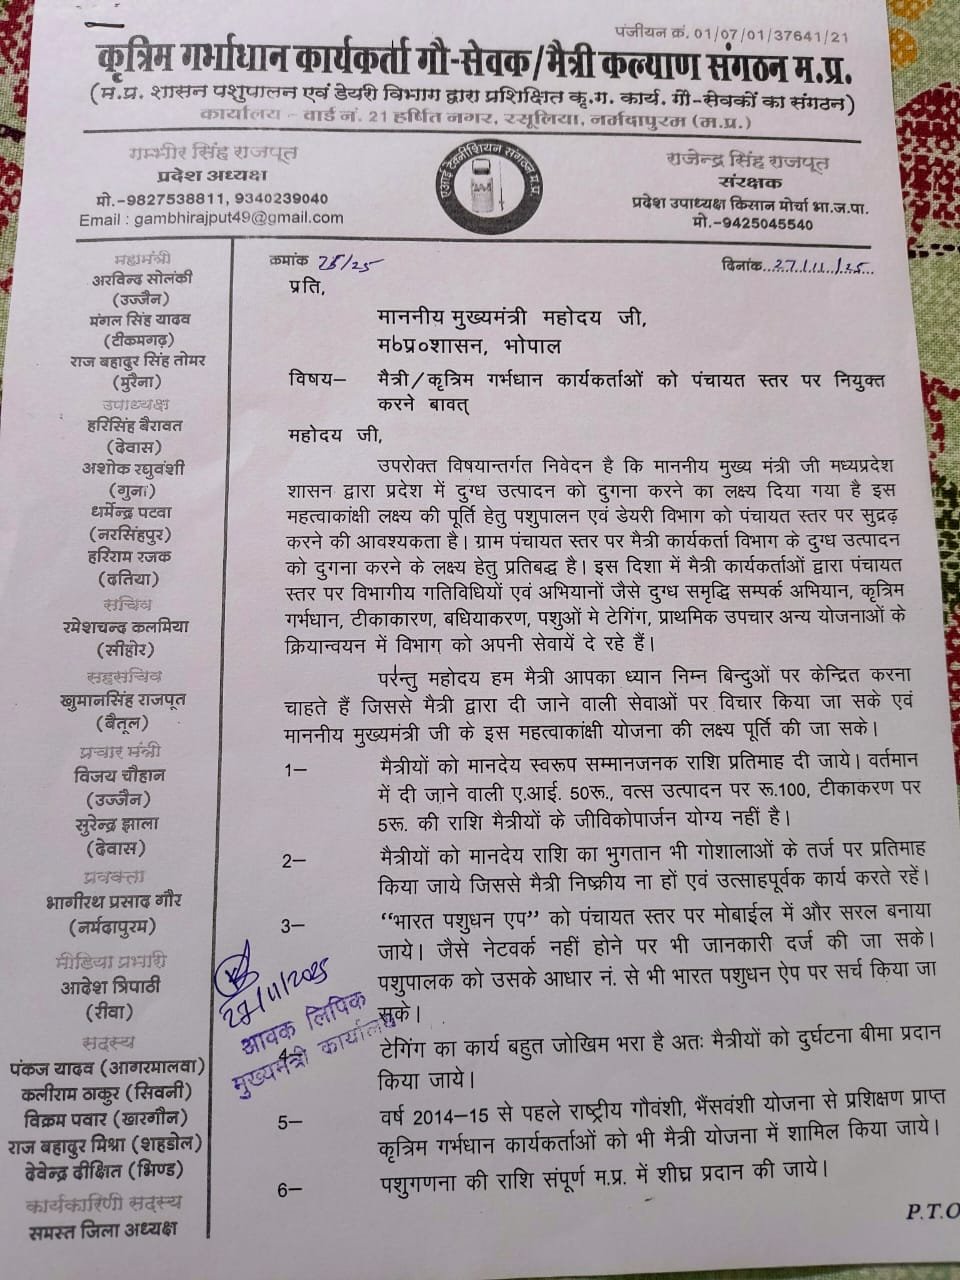 पंजीयन क्र. 01/07/01/37641/21
कृत्रिम गर्भाधान कार्यकर्ता गौ-सेवक/मैत्री कल्याण संगठन म.प्र.
(म.प्र. शासन पशुपालन एवं डेयरी विभाग द्वारा प्रशिक्षित कृ.ग. कार्य. गौ-सेवकों का संगठन)
कार्यालय - वार्ड नं. 21 हर्षित नगर, रसूलिया, नर्मदापुरम (म.प्र.)
गम्भीर सिंह राजपूत
प्रदेश अध्यक्ष
मो.-9827538811, 9340239040
Email : gambhirajput49@gmail.com
एआई टेक्नीशियन संगठन म.प्र.
राजेन्द्र सिंह राजपूत
संरक्षक
प्रदेश उपाध्यक्ष किसान मोर्चा भा.ज.पा.
मो.-9425045540
महामंत्री
अरविन्द सोलंकी
(उज्जैन)
मंगल सिंह यादव
(टीकमगढ़)
राज बहादुर सिंह तोमर
(मुरैना)
उपाध्यक्ष
हरिसिंह बैरावत
(देवास)
अशोक रघुवंशी
(गुना)
धर्मेन्द्र पटवा
(नरसिंहपुर)
हरिराम रजक
(दतिया)
सचिव
रमेशचन्द कलमिया
(सीहोर)
सहसचिव
खुमानसिंह राजपूत
(बैतूल)
प्रचार मंत्री
विजय चौहान
(उज्जैन)
सुरेन्द्र झाला
(देवास)
प्रवक्ता
भागीरथ प्रसाद गौर
(नर्मदापुरम)
मीडिया प्रभारी
आदेश त्रिपाठी
(रीवा)
सदस्य
पंकज यादव (आगरमालवा)
कलीराम ठाकुर (सिवनी)
विक्रम पवार (खारगौन)
राज बहादुर मिश्रा (शहडोल)
देवेन्द्र दीक्षित (भिण्ड)
कार्यकारिणी सदस्य
समस्त जिला अध्यक्ष
कमांक /25
दिनांक..27/11/25...
प्रति,
माननीय मुख्यमंत्री महोदय जी,
म०प्र०शासन, भोपाल
विषय– मैत्री/कृत्रिम गर्भधान कार्यकर्ताओं को पंचायत स्तर पर नियुक्त
करने बावत्
महोदय जी,
उपरोक्त विषयान्तर्गत निवेदन है कि माननीय मुख्य मंत्री जी मध्यप्रदेश
शासन द्वारा प्रदेश में दुग्ध उत्पादन को दुगना करने का लक्ष्य दिया गया है इस
महत्वाकांक्षी लक्ष्य की पूर्ति हेतु पशुपालन एवं डेयरी विभाग को पंचायत स्तर पर सुद्रढ़
करने की आवश्यकता है। ग्राम पंचायत स्तर पर मैत्री कार्यकर्ता विभाग के दुग्ध उत्पादन
को दुगना करने के लक्ष्य हेतु प्रतिबद्ध है। इस दिशा में मैत्री कार्यकर्ताओं द्वारा पंचायत
स्तर पर विभागीय गतिविधियों एवं अभियानों जैसे दुग्ध समृद्धि सम्पर्क अभियान, कृत्रिम
गर्भधान, टीकाकारण, बधियाकरण, पशुओं मे टेगिंग, प्राथमिक उपचार अन्य योजनाओं के
क्रियान्वयन में विभाग को अपनी सेवायें दे रहे हैं।
परंन्तु महोदय हम मैत्री आपका ध्यान निम्न बिन्दुओं पर केन्द्रित करना
चाहते हैं जिससे मैत्री द्वारा दी जाने वाली सेवाओं पर विचार किया जा सके एवं
माननीय मुख्यमंत्री जी के इस महत्वाकांक्षी योजना की लक्ष्य पूर्ति की जा सके।
1– मैत्रीयों को मानदेय स्वरूप सम्मानजनक राशि प्रतिमाह दी जाये। वर्तमान
में दी जाने वाली ए.आई. 50रू., वत्स उत्पादन पर रू.100, टीकाकरण पर
5रू. की राशि मैत्रीयों के जीविकोपार्जन योग्य नहीं है।
2– मैत्रीयों को मानदेय राशि का भुगतान भी गोशालाओं के तर्ज पर प्रतिमाह
किया जाये जिससे मैत्री निष्क्रीय ना हों एवं उत्साहपूर्वक कार्य करते रहें।
3– “भारत पशुधन एप” को पंचायत स्तर पर मोबाईल में और सरल बनाया
जाये। जैसे नेटवर्क नहीं होने पर भी जानकारी दर्ज की जा सके।
पशुपालक को उसके आधार नं. से भी भारत पशुधन ऐप पर सर्च किया जा
सके।
4– टेगिंग का कार्य बहुत जोखिम भरा है अतः मैत्रीयों को दुर्घटना बीमा प्रदान
किया जाये।
5– वर्ष 2014–15 से पहले राष्ट्रीय गौवंशी, भैंसवंशी योजना से प्रशिक्षण प्राप्त
कृत्रिम गर्भधान कार्यकर्ताओं को भी मैत्री योजना में शामिल किया जाये।
6– पशुगणना की राशि संपूर्ण म.प्र. में शीघ्र प्रदान की जाये।
27/11/2025
आवक लिपिक
मुख्यमंत्री कार्यालय
P.T.O